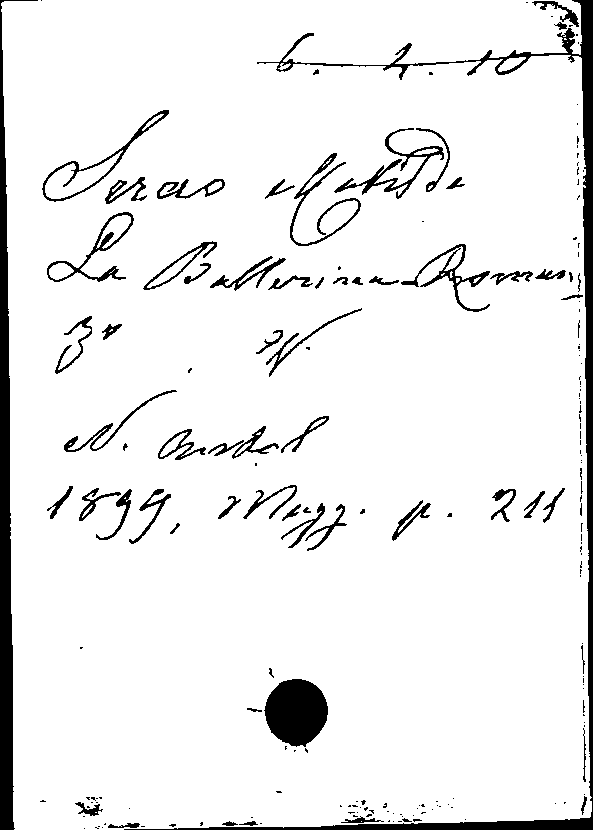 6. 4. 10
Serao Matilde
La Ballerina - Roman
3° N.
N. Antol
1899, Magg. p. 211